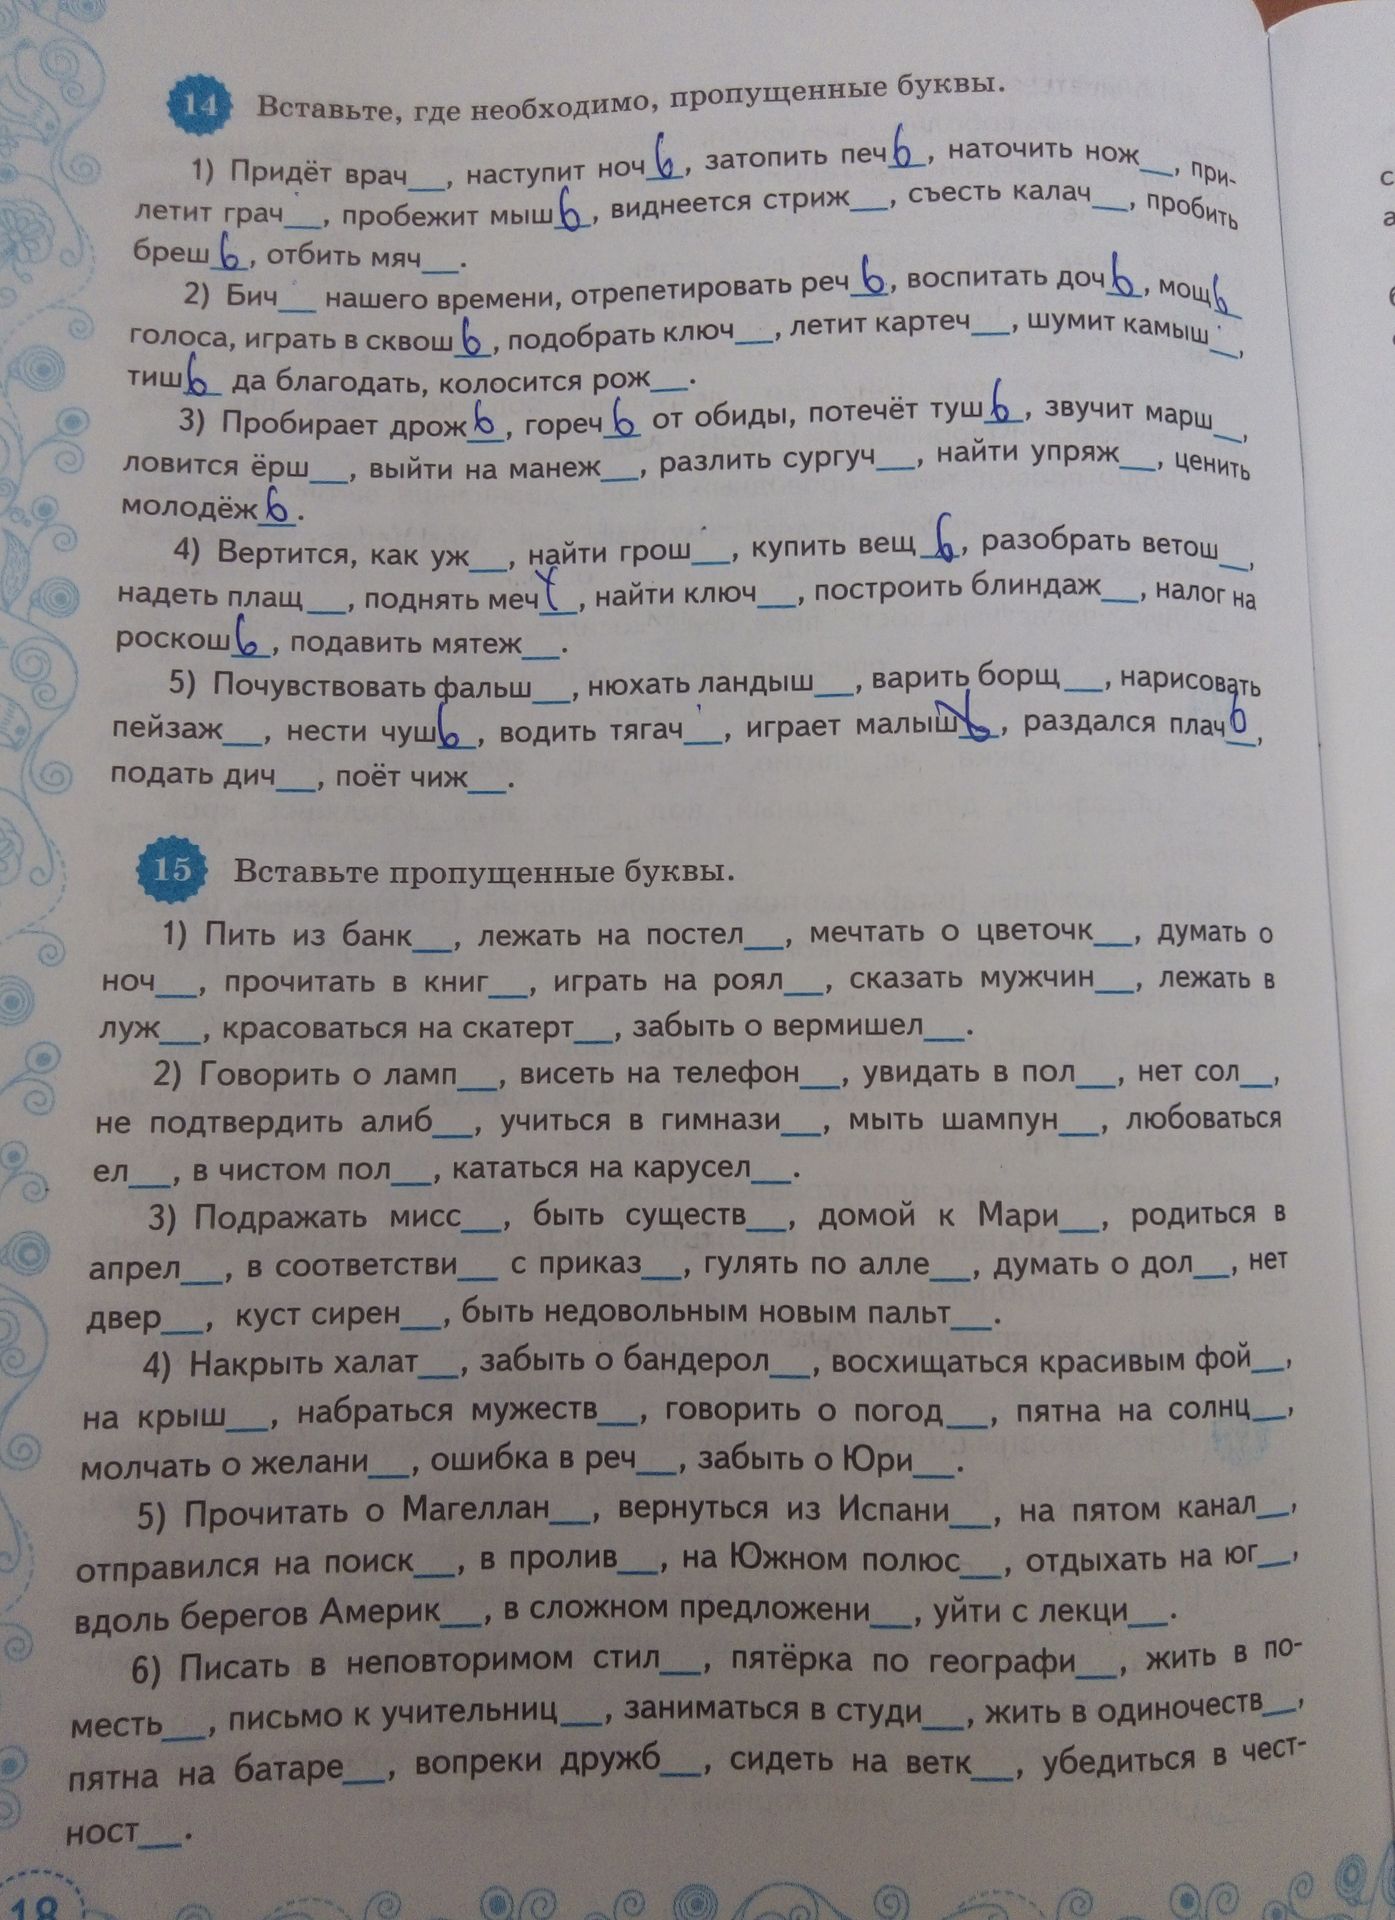 14 Вставьте, где необходимо, пропущенные буквы.
1) Придёт врач__, наступит ночь, затопить печь, наточить нож__, при-
летит грач__, пробежит мышь, виднеется стриж__, съесть калач__, пробить
брешь, отбить мяч__.
2) Бич__ нашего времени, отрепетировать речь, воспитать дочь, мощь
голоса, играть в сквошь, подобрать ключ__, летит картеч__, шумит камыш__,
тишь да благодать, колосится рож__.
3) Пробирает дрожь, горечь от обиды, потечёт тушь, звучит марш__,
ловится ёрш__, выйти на манеж__, разлить сургуч__, найти упряж__, ценить
молодёжь.
4) Вертится, как уж__, найти грош__, купить вещь, разобрать ветош__,
надеть плащ__, поднять меч__, найти ключ__, построить блиндаж__, налог на
роскошь, подавить мятеж__.
5) Почувствовать фальш__, нюхать ландыш__, варить борщ__, нарисовать
пейзаж__, нести чушь, водить тягач__, играет малыш__, раздался плачь,
подать дич__, поёт чиж__.
15 Вставьте пропущенные буквы.
1) Пить из банк__, лежать на постел__, мечтать о цветочк__, думать о
ноч__, прочитать в книг__, играть на роял__, сказать мужчин__, лежать в
луж__, красоваться на скатерт__, забыть о вермишел__.
2) Говорить о ламп__, висеть на телефон__, увидать в пол__, нет сол__,
не подтвердить алиб__, учиться в гимнази__, мыть шампун__, любоваться
ел__, в чистом пол__, кататься на карусел__.
3) Подражать мисс__, быть существ__, домой к Мари__, родиться в
апрел__, в соответстви__ с приказ__, гулять по алле__, думать о дол__, нет
двер__, куст сирен__, быть недовольным новым пальт__.
4) Накрыть халат__, забыть о бандерол__, восхищаться красивым фой__,
на крыш__, набраться мужеств__, говорить о погод__, пятна на солнц__,
молчать о желани__, ошибка в реч__, забыть о Юри__.
5) Прочитать о Магеллан__, вернуться из Испани__, на пятом канал__,
отправился на поиск__, в пролив__, на Южном полюс__, отдыхать на юг__,
вдоль берегов Америк__, в сложном предложени__, уйти с лекци__.
6) Писать в неповторимом стил__, пятёрка по географи__, жить в по-
месть__, письмо к учительниц__, заниматься в студи__, жить в одиночеств__,
пятна на батаре__, вопреки дружб__, сидеть на ветк__, убедиться в чест-
ност__.
18